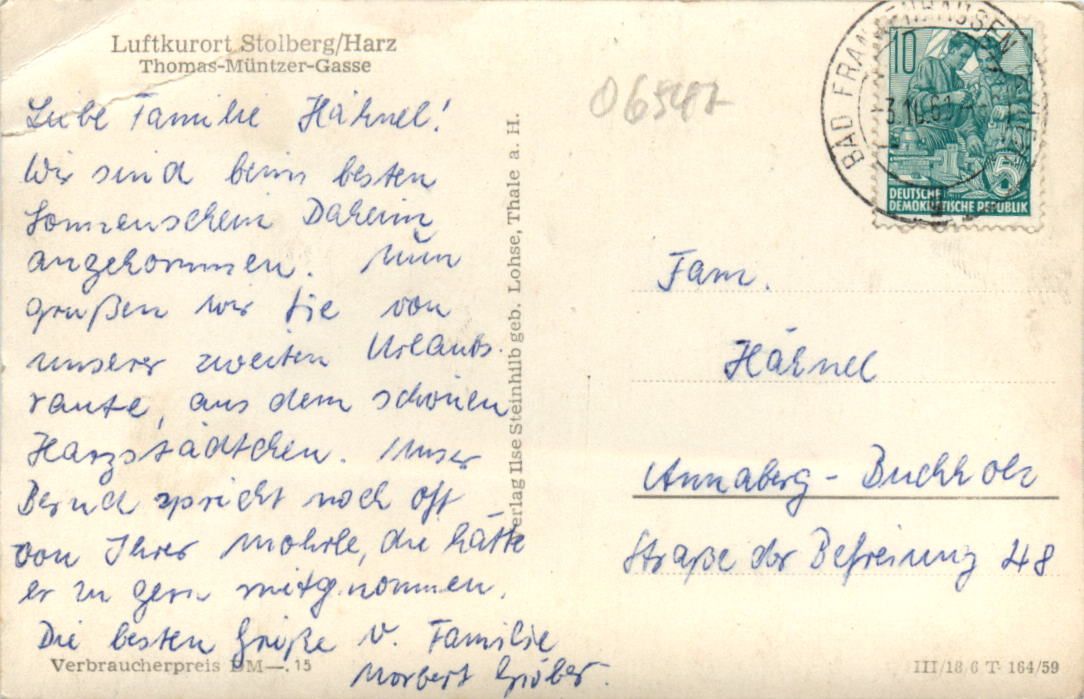 Luftkurort Stolberg/Harz
Thomas-Müntzer-Gasse
Liebe Familie Hähnel!
Wir sind beim besten
Sonnenschein Daheim
angekommen. Nun
grüßen wir Sie von
unserer zweiten Urlaubs.
raute, aus dem schönen
Harzstädtchen. Unser
Bernd spricht noch oft
von Ihrer Mohrle, die hätte
er zu gern mitgenommen.
Die besten Grüße v. Familie
Norbert Gröber.
Verbraucherpreis DM—.15
Verlag Ilse Steinhilb geb. Lohse, Thale a. H.
06547
BAD FRANKENHAUSEN
3.10.60
10
5
DEUTSCHE
DEMOKRATISCHE REPUBLIK
Fam.
Hähnel
Annaberg-Buchholz
Straße der Befreiung 48
III/18/6 T 164/59